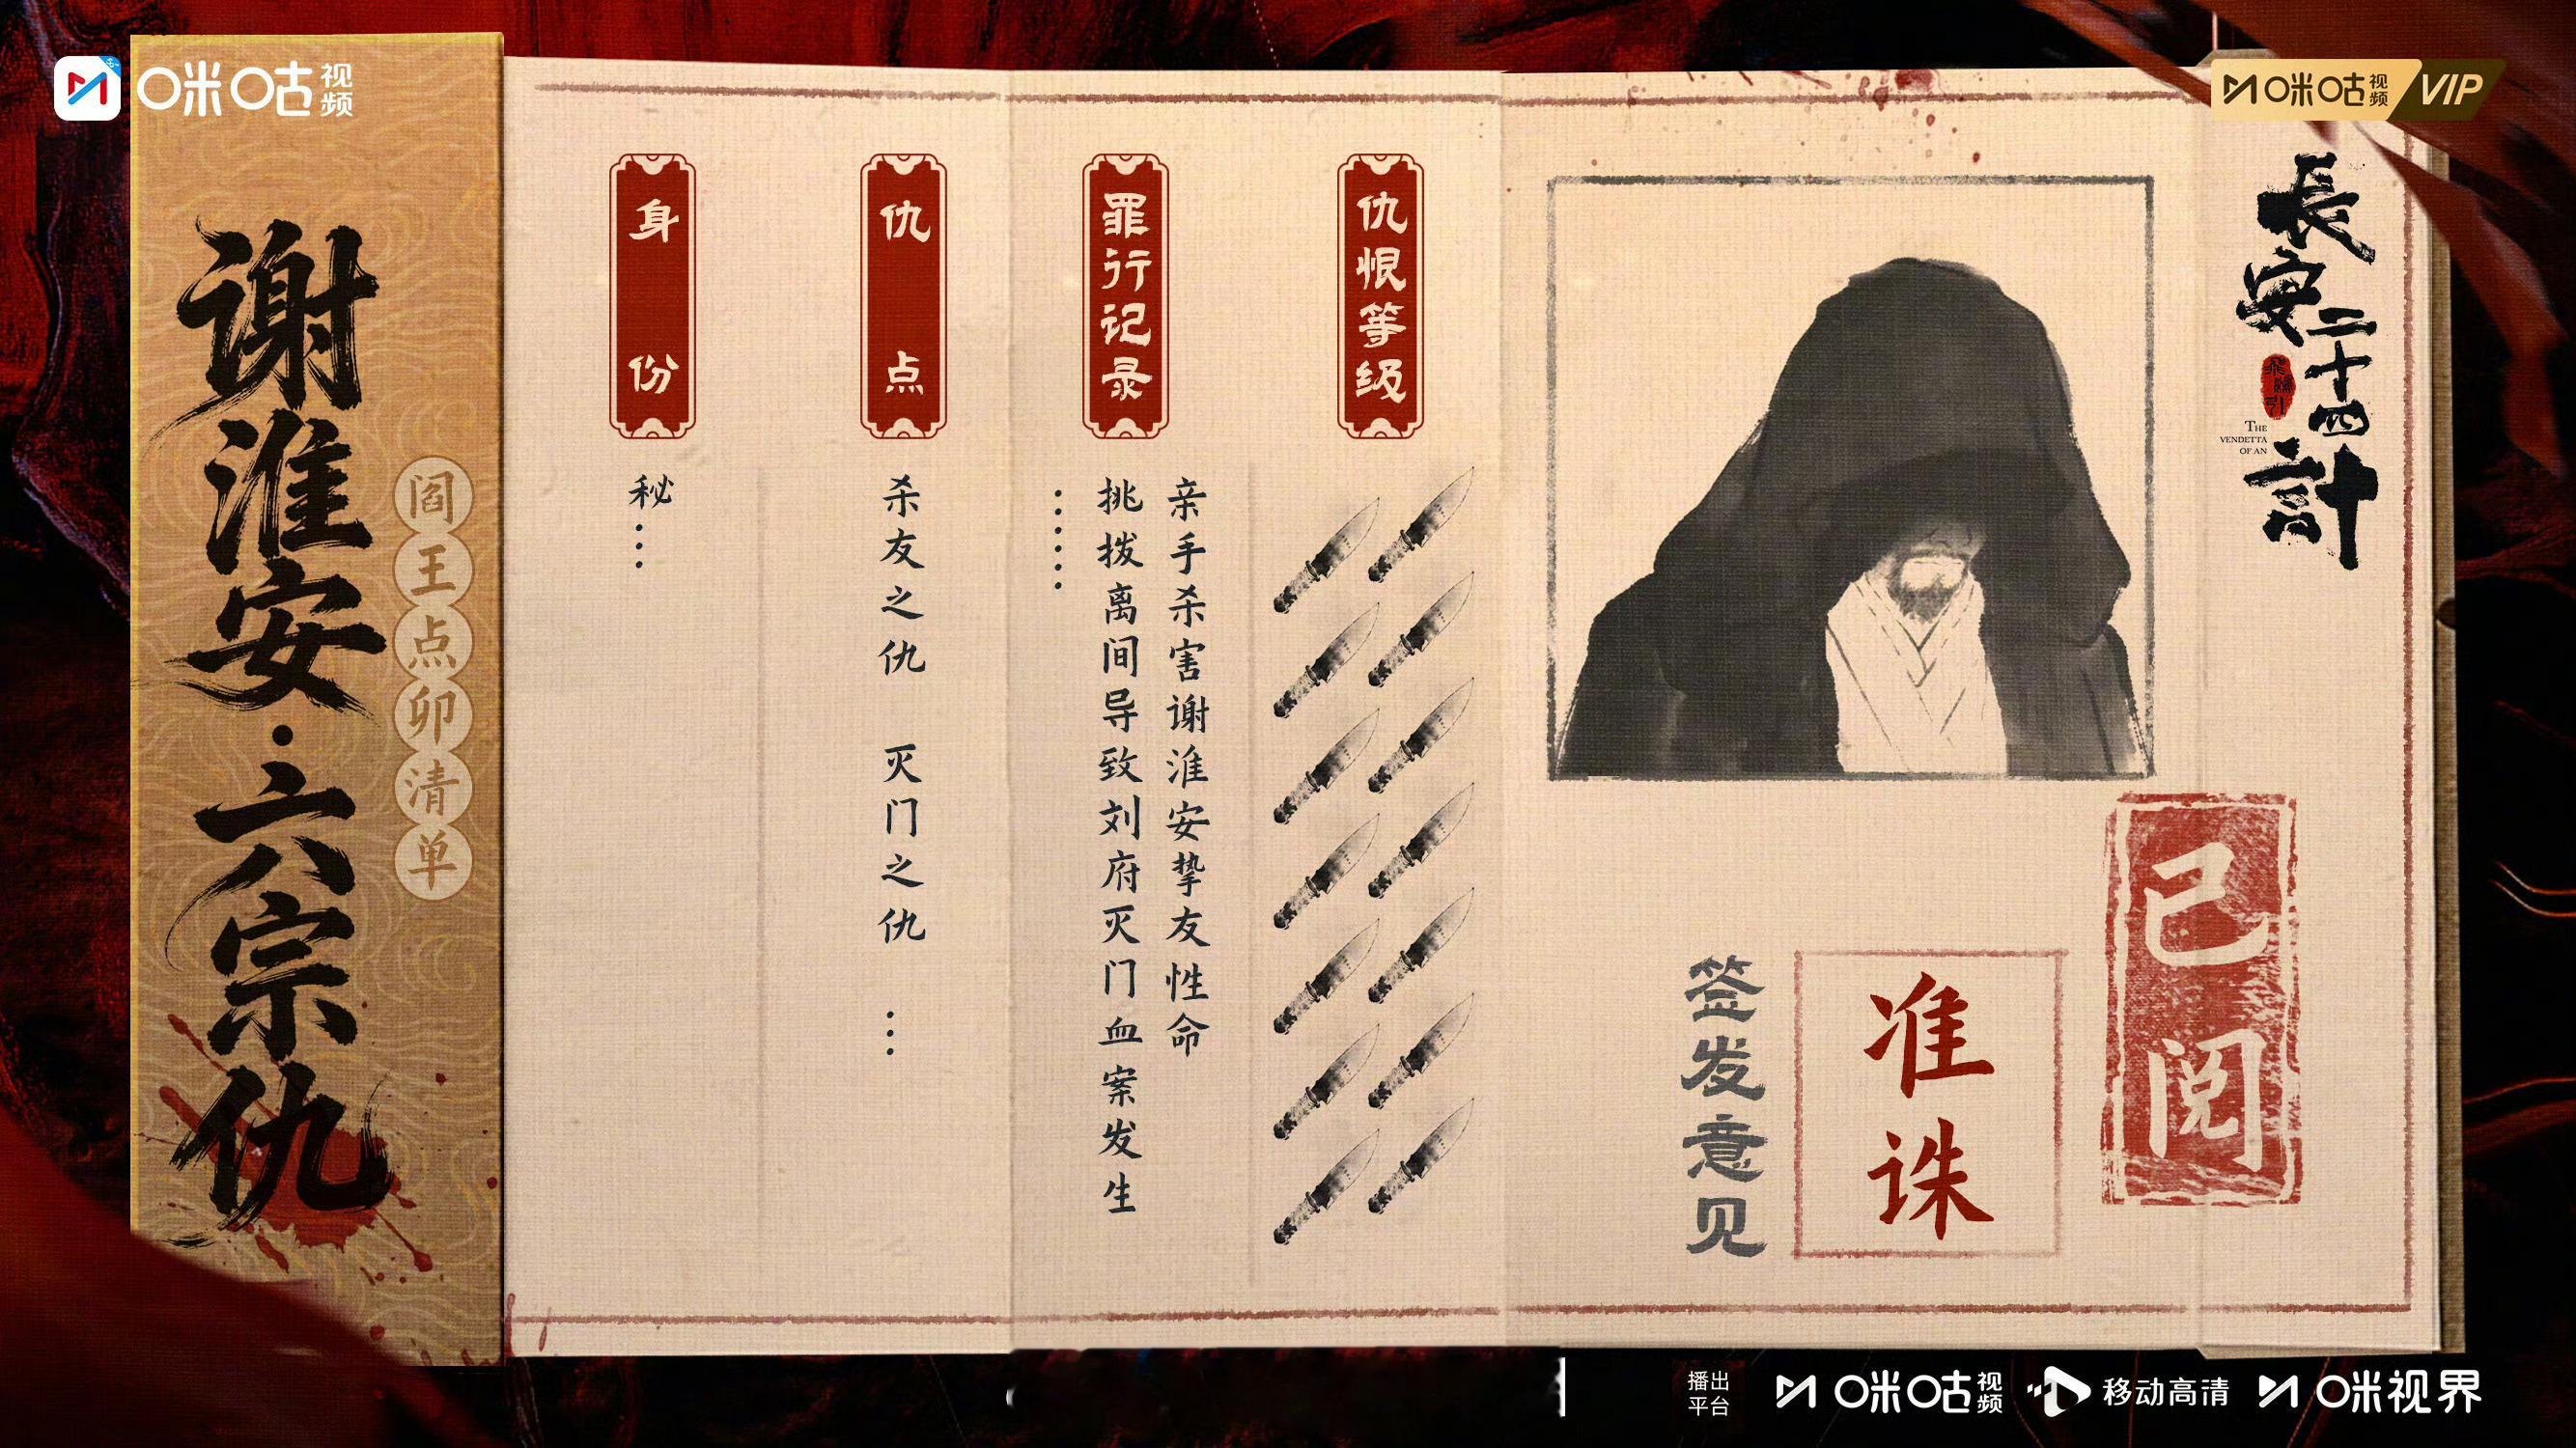 咪咕视频
咪咕视频 VIP
谢淮安·六宗仇
阎王点卯清单
身份
秘…
仇点
杀友之仇 灭门之仇 …
罪行记录
亲手杀害谢淮安挚友性命
挑拨离间导致刘府灭门血案发生
……
仇恨等级
長安二十四計
THE
VENDETTA
OF AN
签发意见
准诛
已阅
播出平台
咪咕视频
移动高清
咪视界